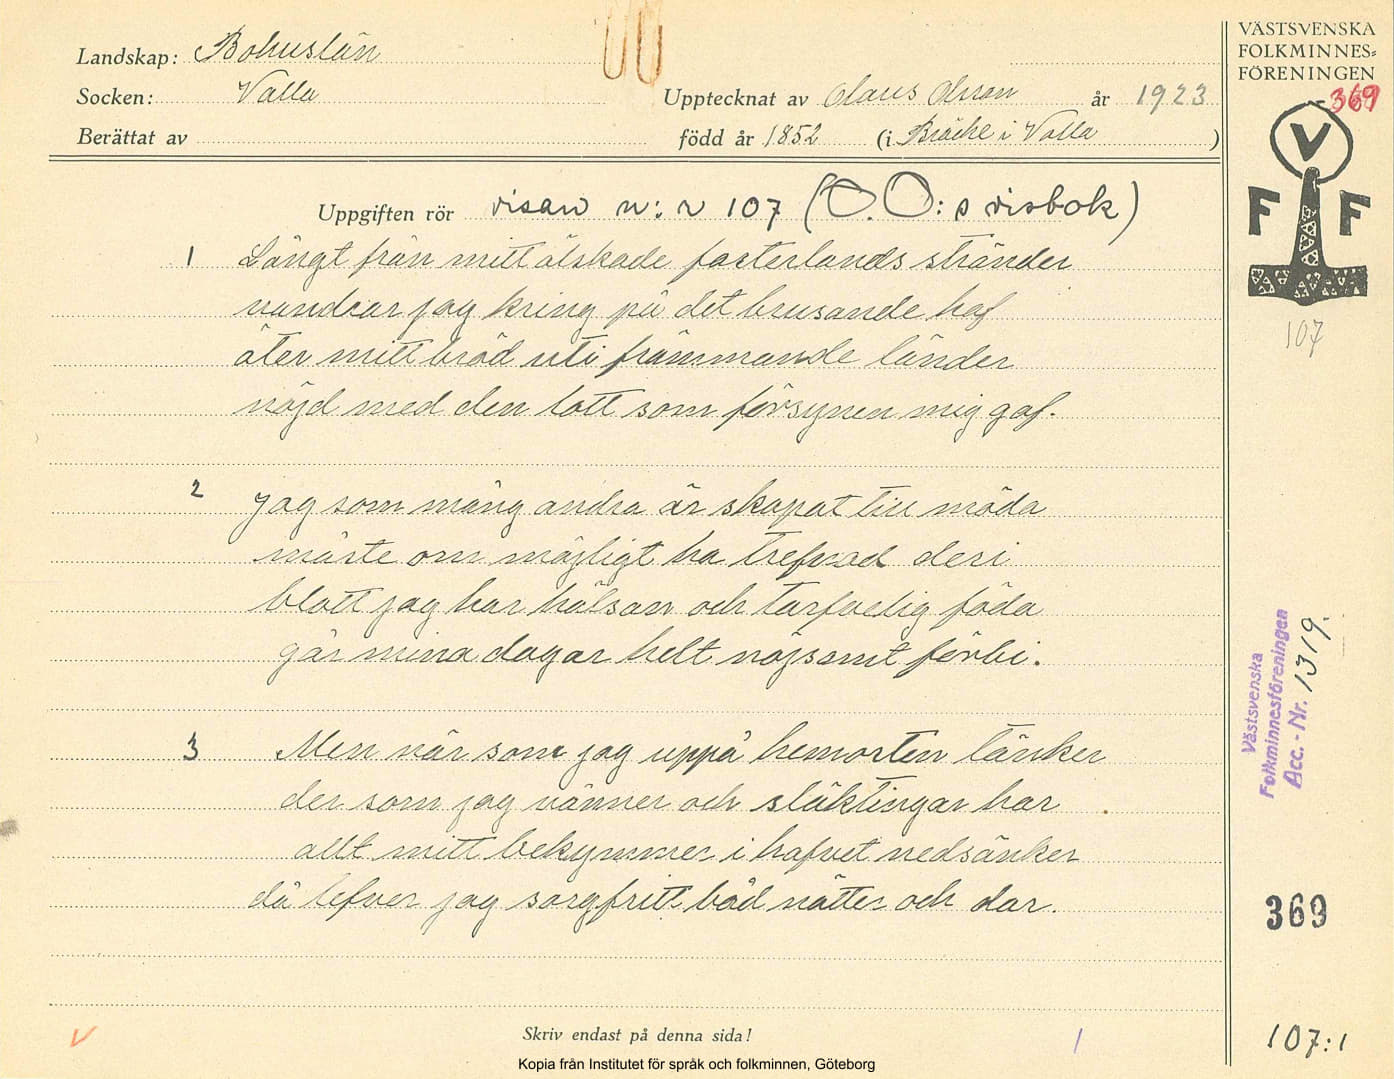 Landskap: Bohuslän
Socken: Valla
Upptecknat av Olaus Olsson år 1923
Berättat av född år 1852 (i Bräcke i Valla)
Uppgiften rör visan n:r 107 (O.O:s visbok)
1 Långt från mitt älskade fosterlands stränder
vandrar jag kring på det brusande haf
äter mitt bröd uti främmande länder
nöjd med den lott som försynen mig gaf.
2 jag som mång andra är skapat till möda
måste om möjligt ha trefnad deri
blott jag har hälsan och tarfvelig föda
går mina dagar helt nöjsamt förbi.
3 Men när som jag uppå hemorten tänker
der som jag vänner och släktingar har
allt mitt bekymmer i hafvet nedsänker
då lefver jag sorgfritt båd nätter och dar.
Skriv endast på denna sida!
1
Kopia från Institutet för språk och folkminnen, Göteborg
VÄSTSVENSKA
FOLKMINNES=
FÖRENINGEN
369
V
F F
107
Västsvenska
Folkminnesföreningen
Acc.-Nr. 1319.
369
107:1